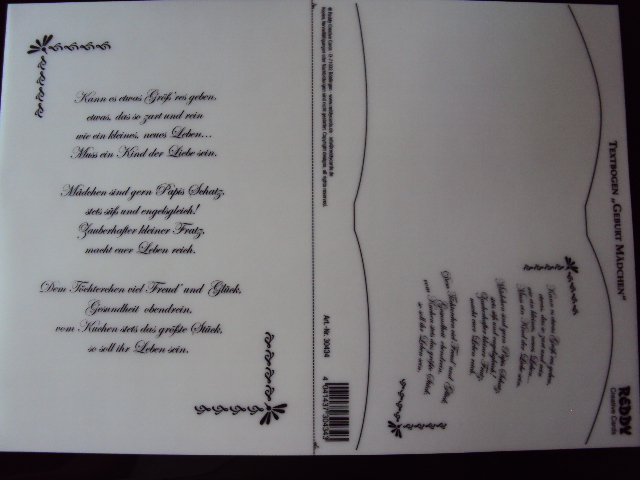 Kann es etwas Größ'res geben,
etwas, das so zart und rein
wie ein kleines, neues Leben...
Muss ein Kind der Liebe sein.
Mädchen sind gern Papis Schatz,
stets süß und engelsgleich!
Zauberhafter kleiner Fratz,
macht euer Leben reich.
Dem Töchterchen viel Freud' und Glück,
Gesundheit obendrein,
vom Kuchen stets das größte Stück,
so soll ihr Leben sein.
Art.-Nr. 30434
Kann es etwas Größ'res geben,
etwas, das so zart und rein
wie ein kleines, neues Leben...
Muss ein Kind der Liebe sein.
Mädchen sind gern Papis Schatz,
stets süß und engelsgleich!
Zauberhafter kleiner Fratz,
macht euer Leben reich.
Dem Töchterchen viel Freud' und Glück,
Gesundheit obendrein,
vom Kuchen stets das größte Stück,
so soll ihr Leben sein.
Textbogen „Geburt Mädchen"
REDDY
Creative Cards